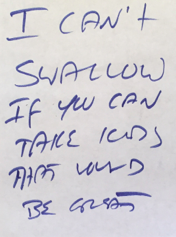 I CAN'T
SWALLOW
IF YOU CAN
TAKE KIDS
THAT WOULD
BE GREAT